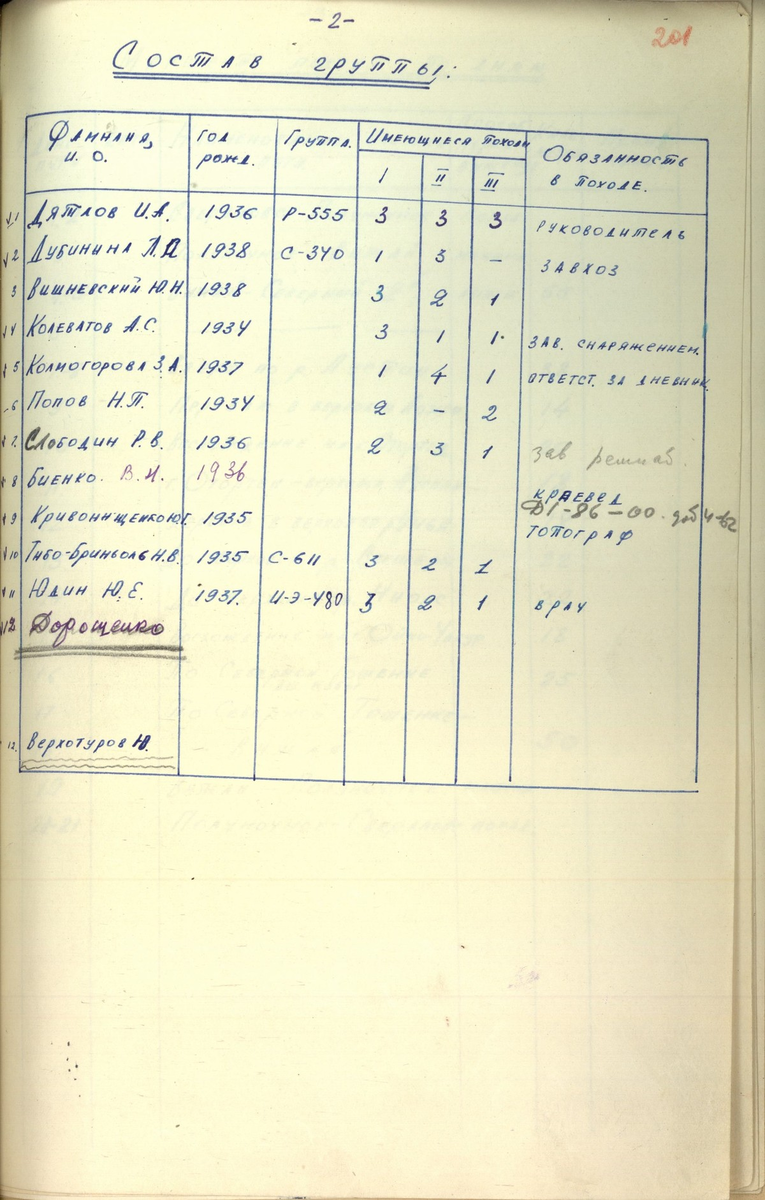 -2-
201
Состав группы:
Фамилия, и. о.
год рожд.
Группа.
Имеющиеся походы
I
II
III
Обязанность в походе.
1 Дятлов И.А. 1936 Р-555 3 3 3 руководитель
2 Дубинина Л.А 1938 С-340 1 3 – завхоз
3 Вишневский Ю.Н. 1938 3 2 1
4 Колеватов А.С. 1934 3 1 1. зав. снаряжением.
5 Колмогорова З.А. 1937 1 4 1 ответст. за дневник.
6 Попов Н.П. 1934 2 – 2
7. Слободин Р.В. 1936 2 3 1 зав ремнаб.
8 Биенко. В.И. 1936 краевед
Д1-86-00. доб 4-62
9 Кривонищенко Ю.Г. 1935 топограф
10 Тибо-Бриньоль Н.В. 1935 С-611 3 2 1
11 Юдин Ю.Е. 1937. И-Э-480 3 2 1 врач
12 Дорошенко
13. Верхотуров Ю.